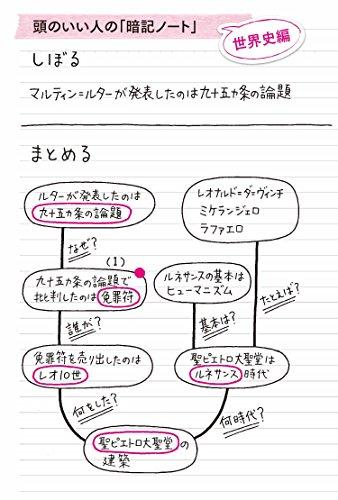 頭のいい人の「暗記ノート」
世界史編
しぼる
マルティン=ルターが発表したのは九十五ヵ条の論題
まとめる
ルターが発表したのは
九十五ヵ条の論題
レオナルド=ダ=ヴィンチ
ミケランジェロ
ラファエロ
なぜ?
(1)
九十五ヵ条の論題で
批判したのは免罪符
ルネサンスの基本は
ヒューマニズム
たとえば?
誰が?
基本は?
免罪符を売り出したのは
レオ10世
聖ピエトロ大聖堂は
ルネサンス時代
何をした?
何時代?
聖ピエトロ大聖堂の
建築